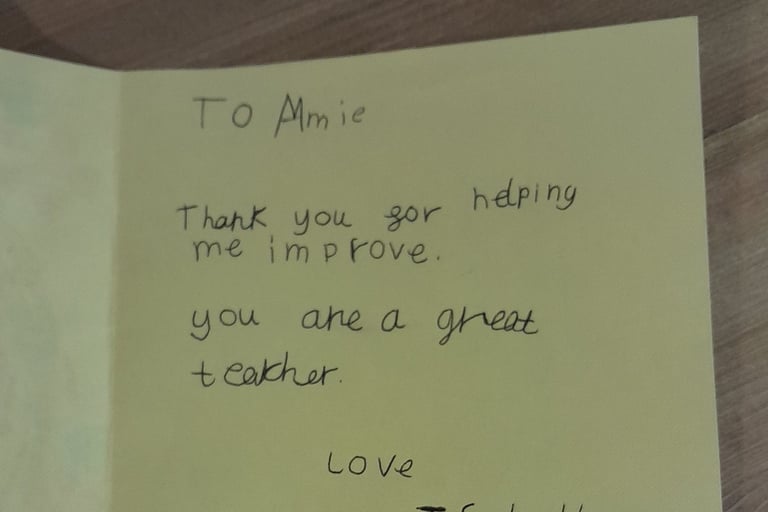 To Amie
Thank you for helping
me improve.
you are a great
teacher.
Love